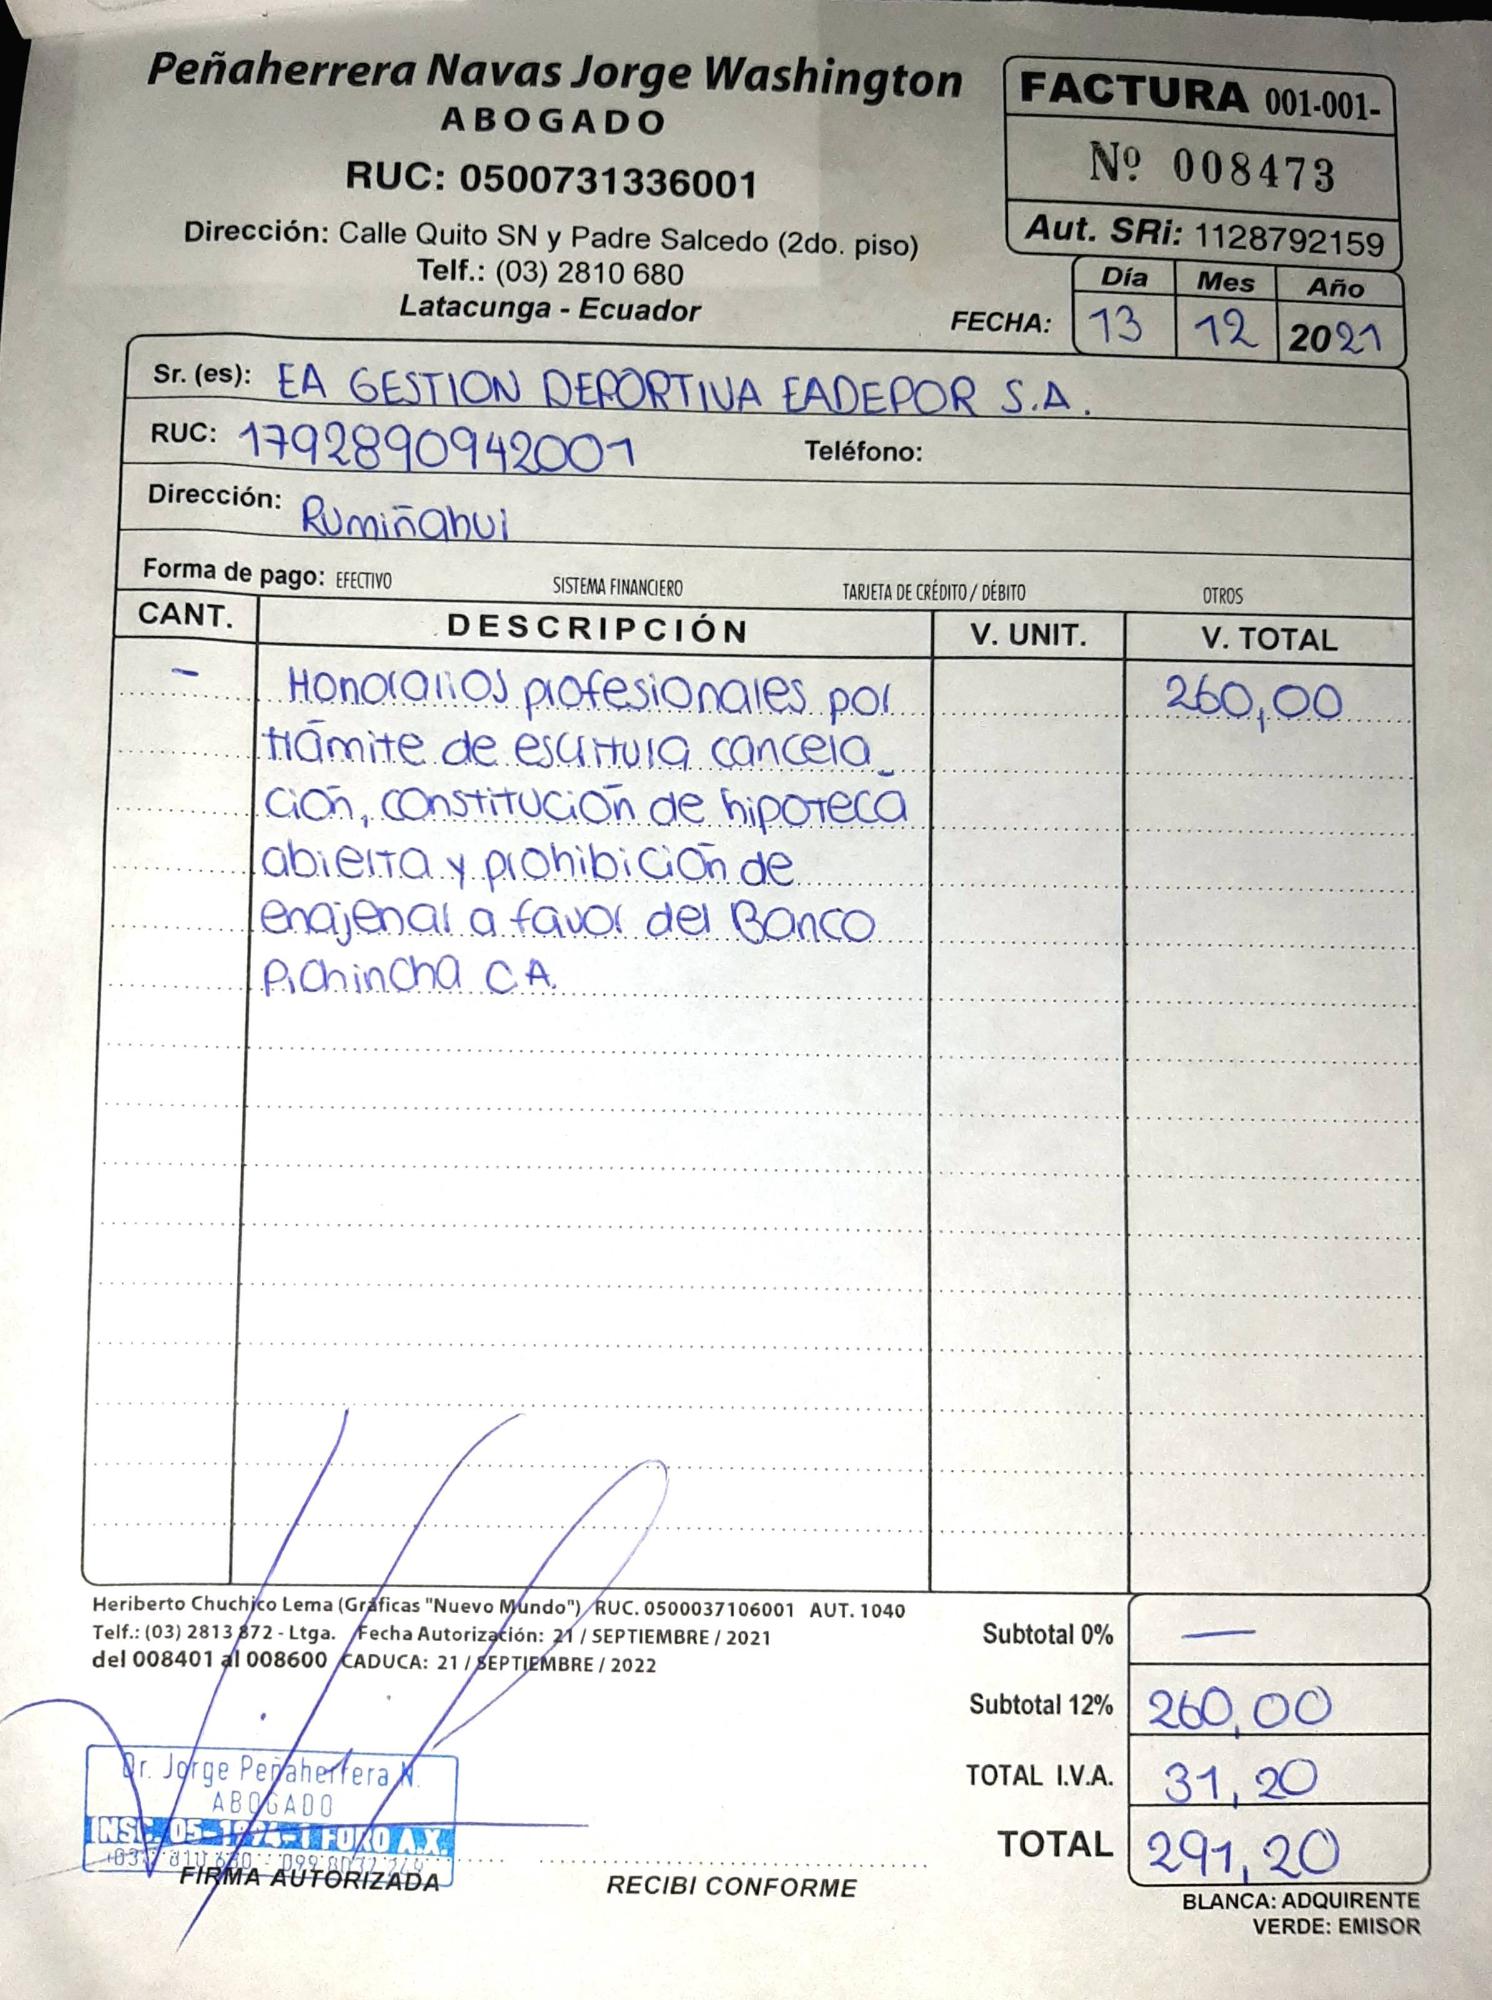 Peñaherrera Navas Jorge Washington
ABOGADO
RUC: 0500731336001
Dirección: Calle Quito SN y Padre Salcedo (2do. piso)
Telf.: (03) 2810 680
Latacunga - Ecuador
FACTURA 001-001-
Nº 008473
Aut. SRi: 1128792159
Día Mes Año
FECHA: 13 12 2021
Sr. (es): EA GESTION DEPORTIVA EADEPOR S.A.
RUC: 1792890942001 Teléfono:
Dirección: Rumiñahui
Forma de pago: EFECTIVO SISTEMA FINANCIERO TARJETA DE CRÉDITO / DÉBITO OTROS
CANT. DESCRIPCIÓN V. UNIT. V. TOTAL
- Honorarios profesionales por 260,00
trámite de escritura cancela_
ción, constitución de hipoteca
abierta y prohibición de
enajenar a favor del Banco
Pichincha C.A.
Heriberto Chuchico Lema (Gráficas "Nuevo Mundo") RUC. 0500037106001 AUT. 1040
Telf.: (03) 2813 872 - Ltga. Fecha Autorización: 21 / SEPTIEMBRE / 2021
del 008401 al 008600 CADUCA: 21 / SEPTIEMBRE / 2022
Subtotal 0% —
Subtotal 12% 260,00
TOTAL I.V.A. 31,20
TOTAL 291,20
Dr. Jorge Peñaherrera N.
ABOGADO
INSC. 05-1974-1 FORO A.X.
FIRMA AUTORIZADA
RECIBI CONFORME
BLANCA: ADQUIRENTE
VERDE: EMISOR